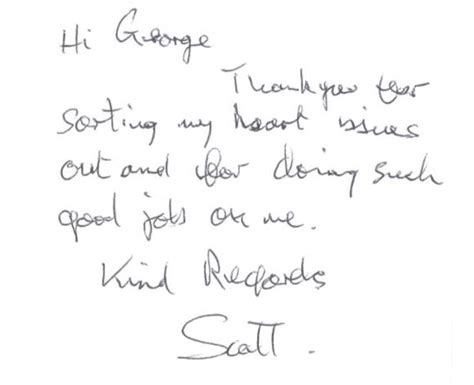 Hi George
Thankyou for
sorting my heart issues
out and for doing such
good job on me.
Kind Regards
Scott.